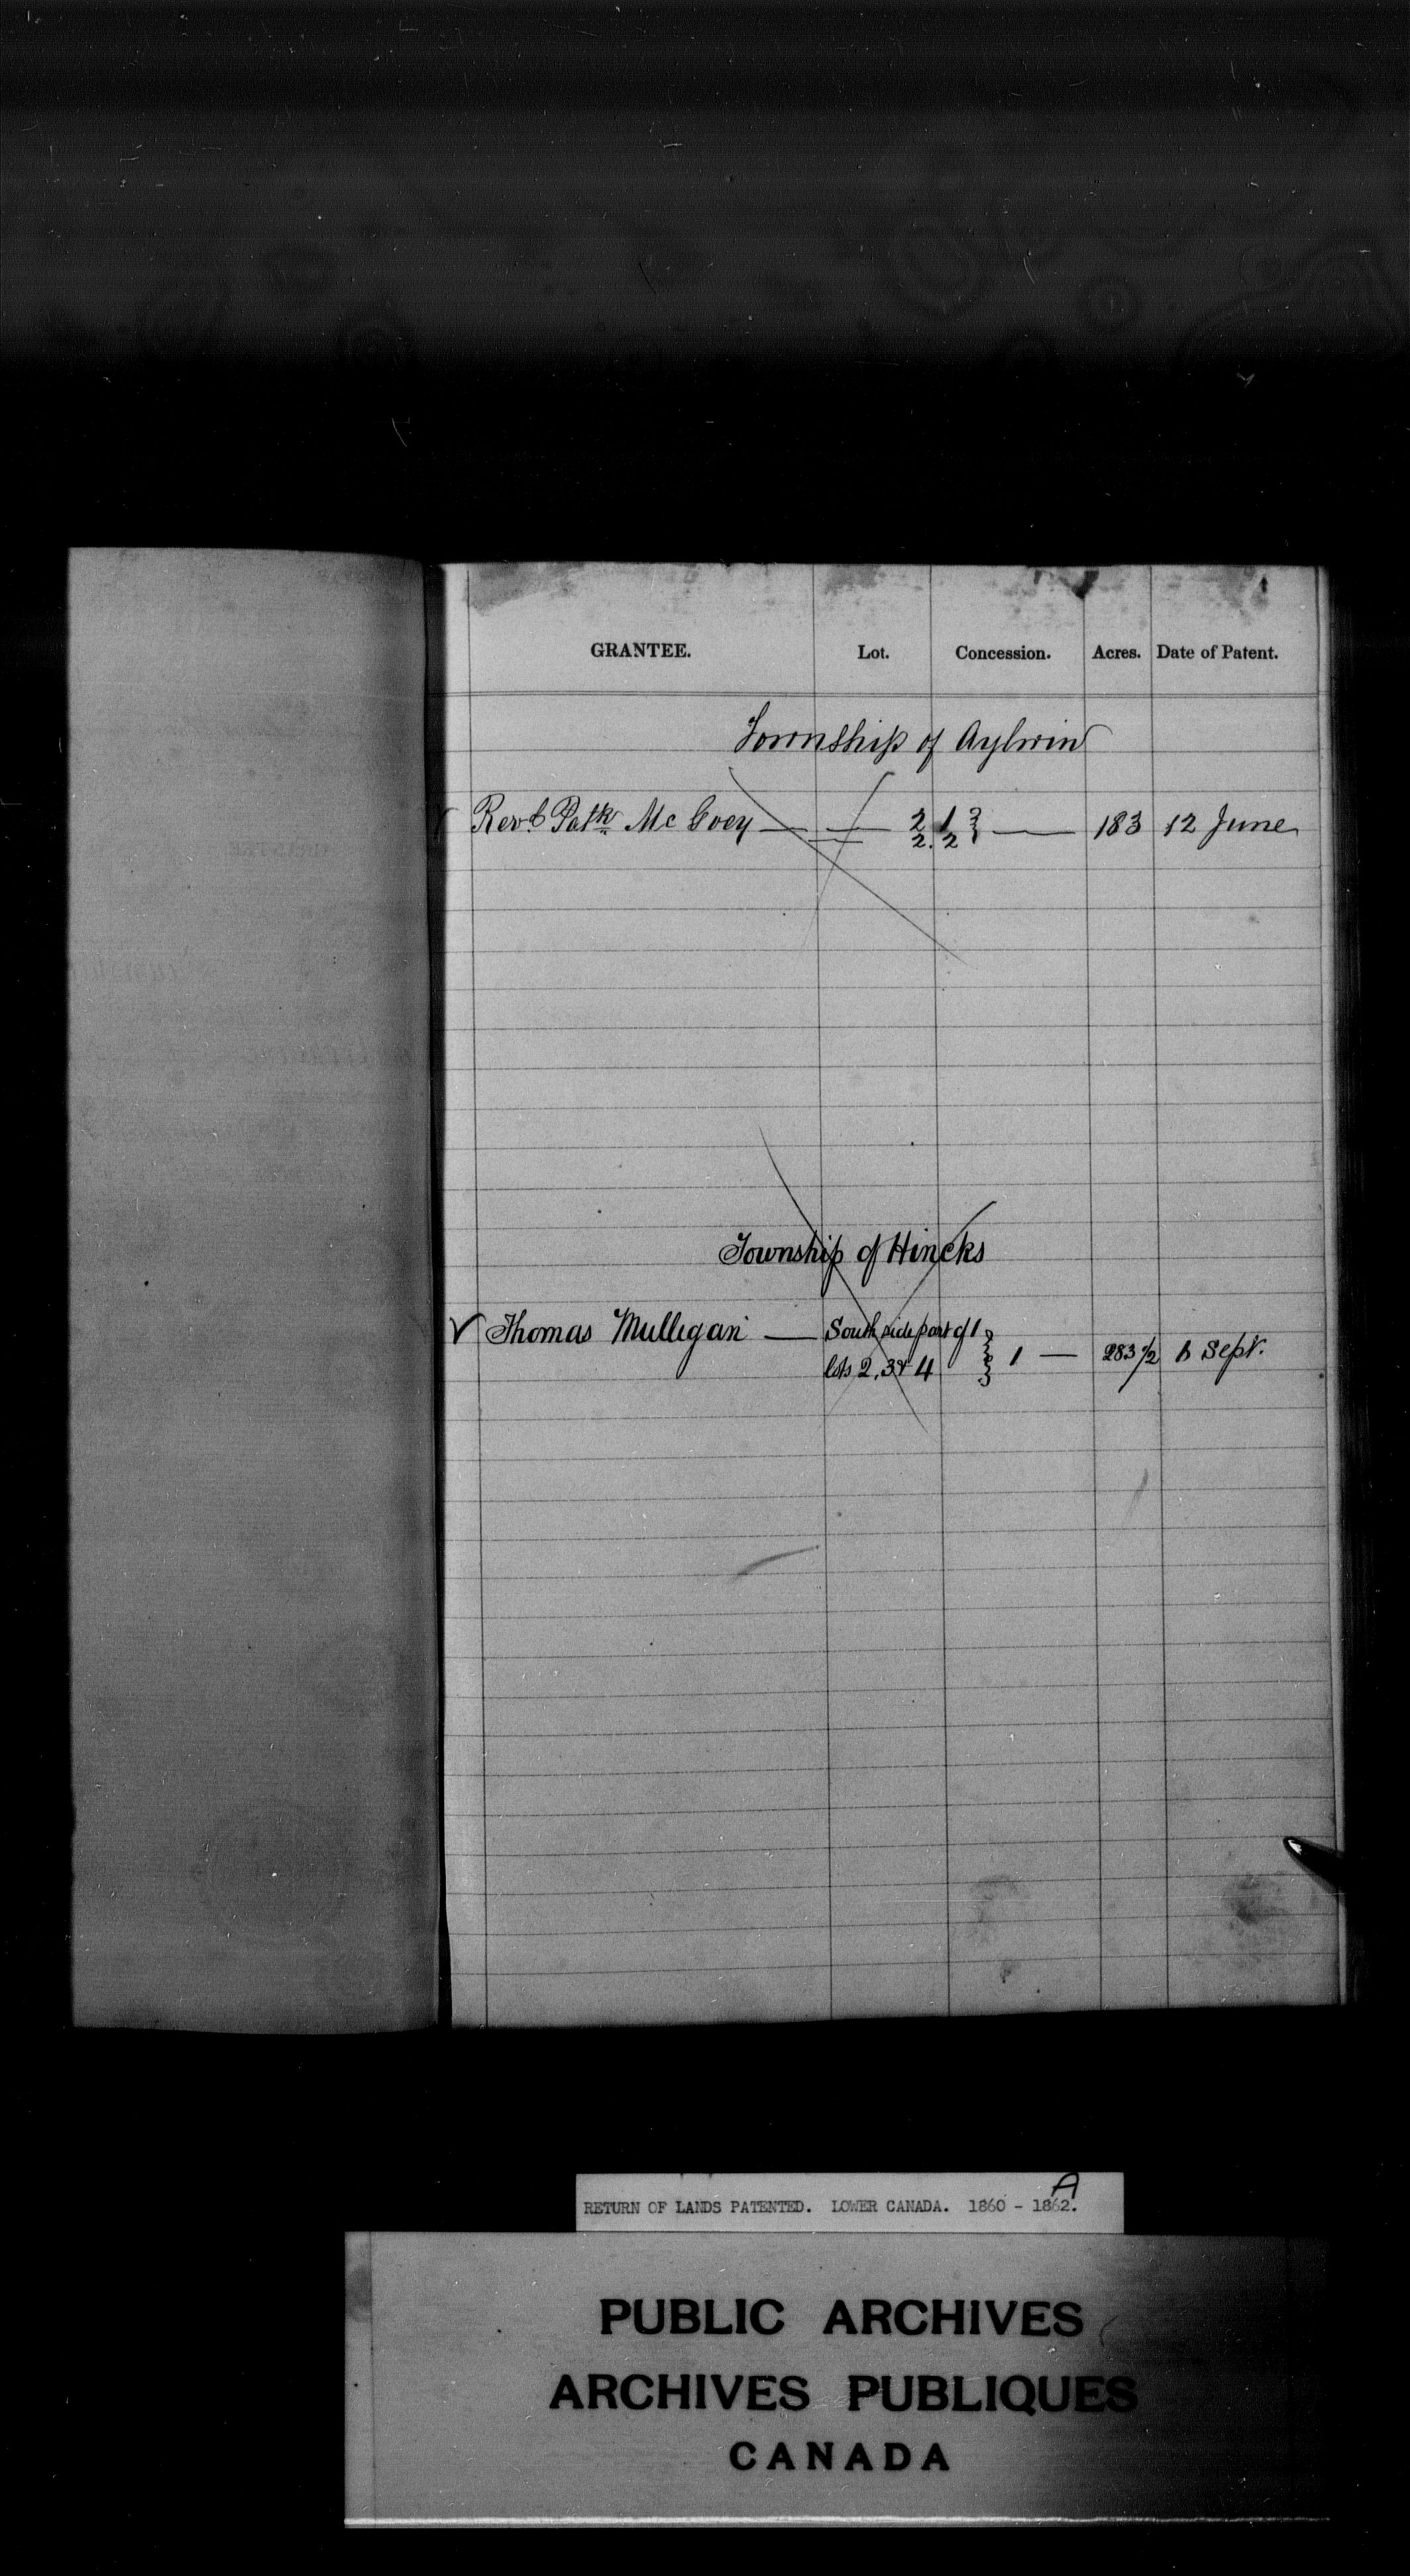 GRANTEE. Lot. Concession. Acres. Date of Patent.
Township of Aylwin
Revd Patk McGoey — — 2 1 } — 183 12 June
2. 2
Township of Hincks
V Thomas Mulligan — South side part of 1 } 1 — 283 1/2 Sept.
lots 2, 3 & 4
A
RETURN OF LANDS PATENTED. LOWER CANADA. 1860 - 1862.
PUBLIC ARCHIVES
ARCHIVES PUBLIQUES
CANADA